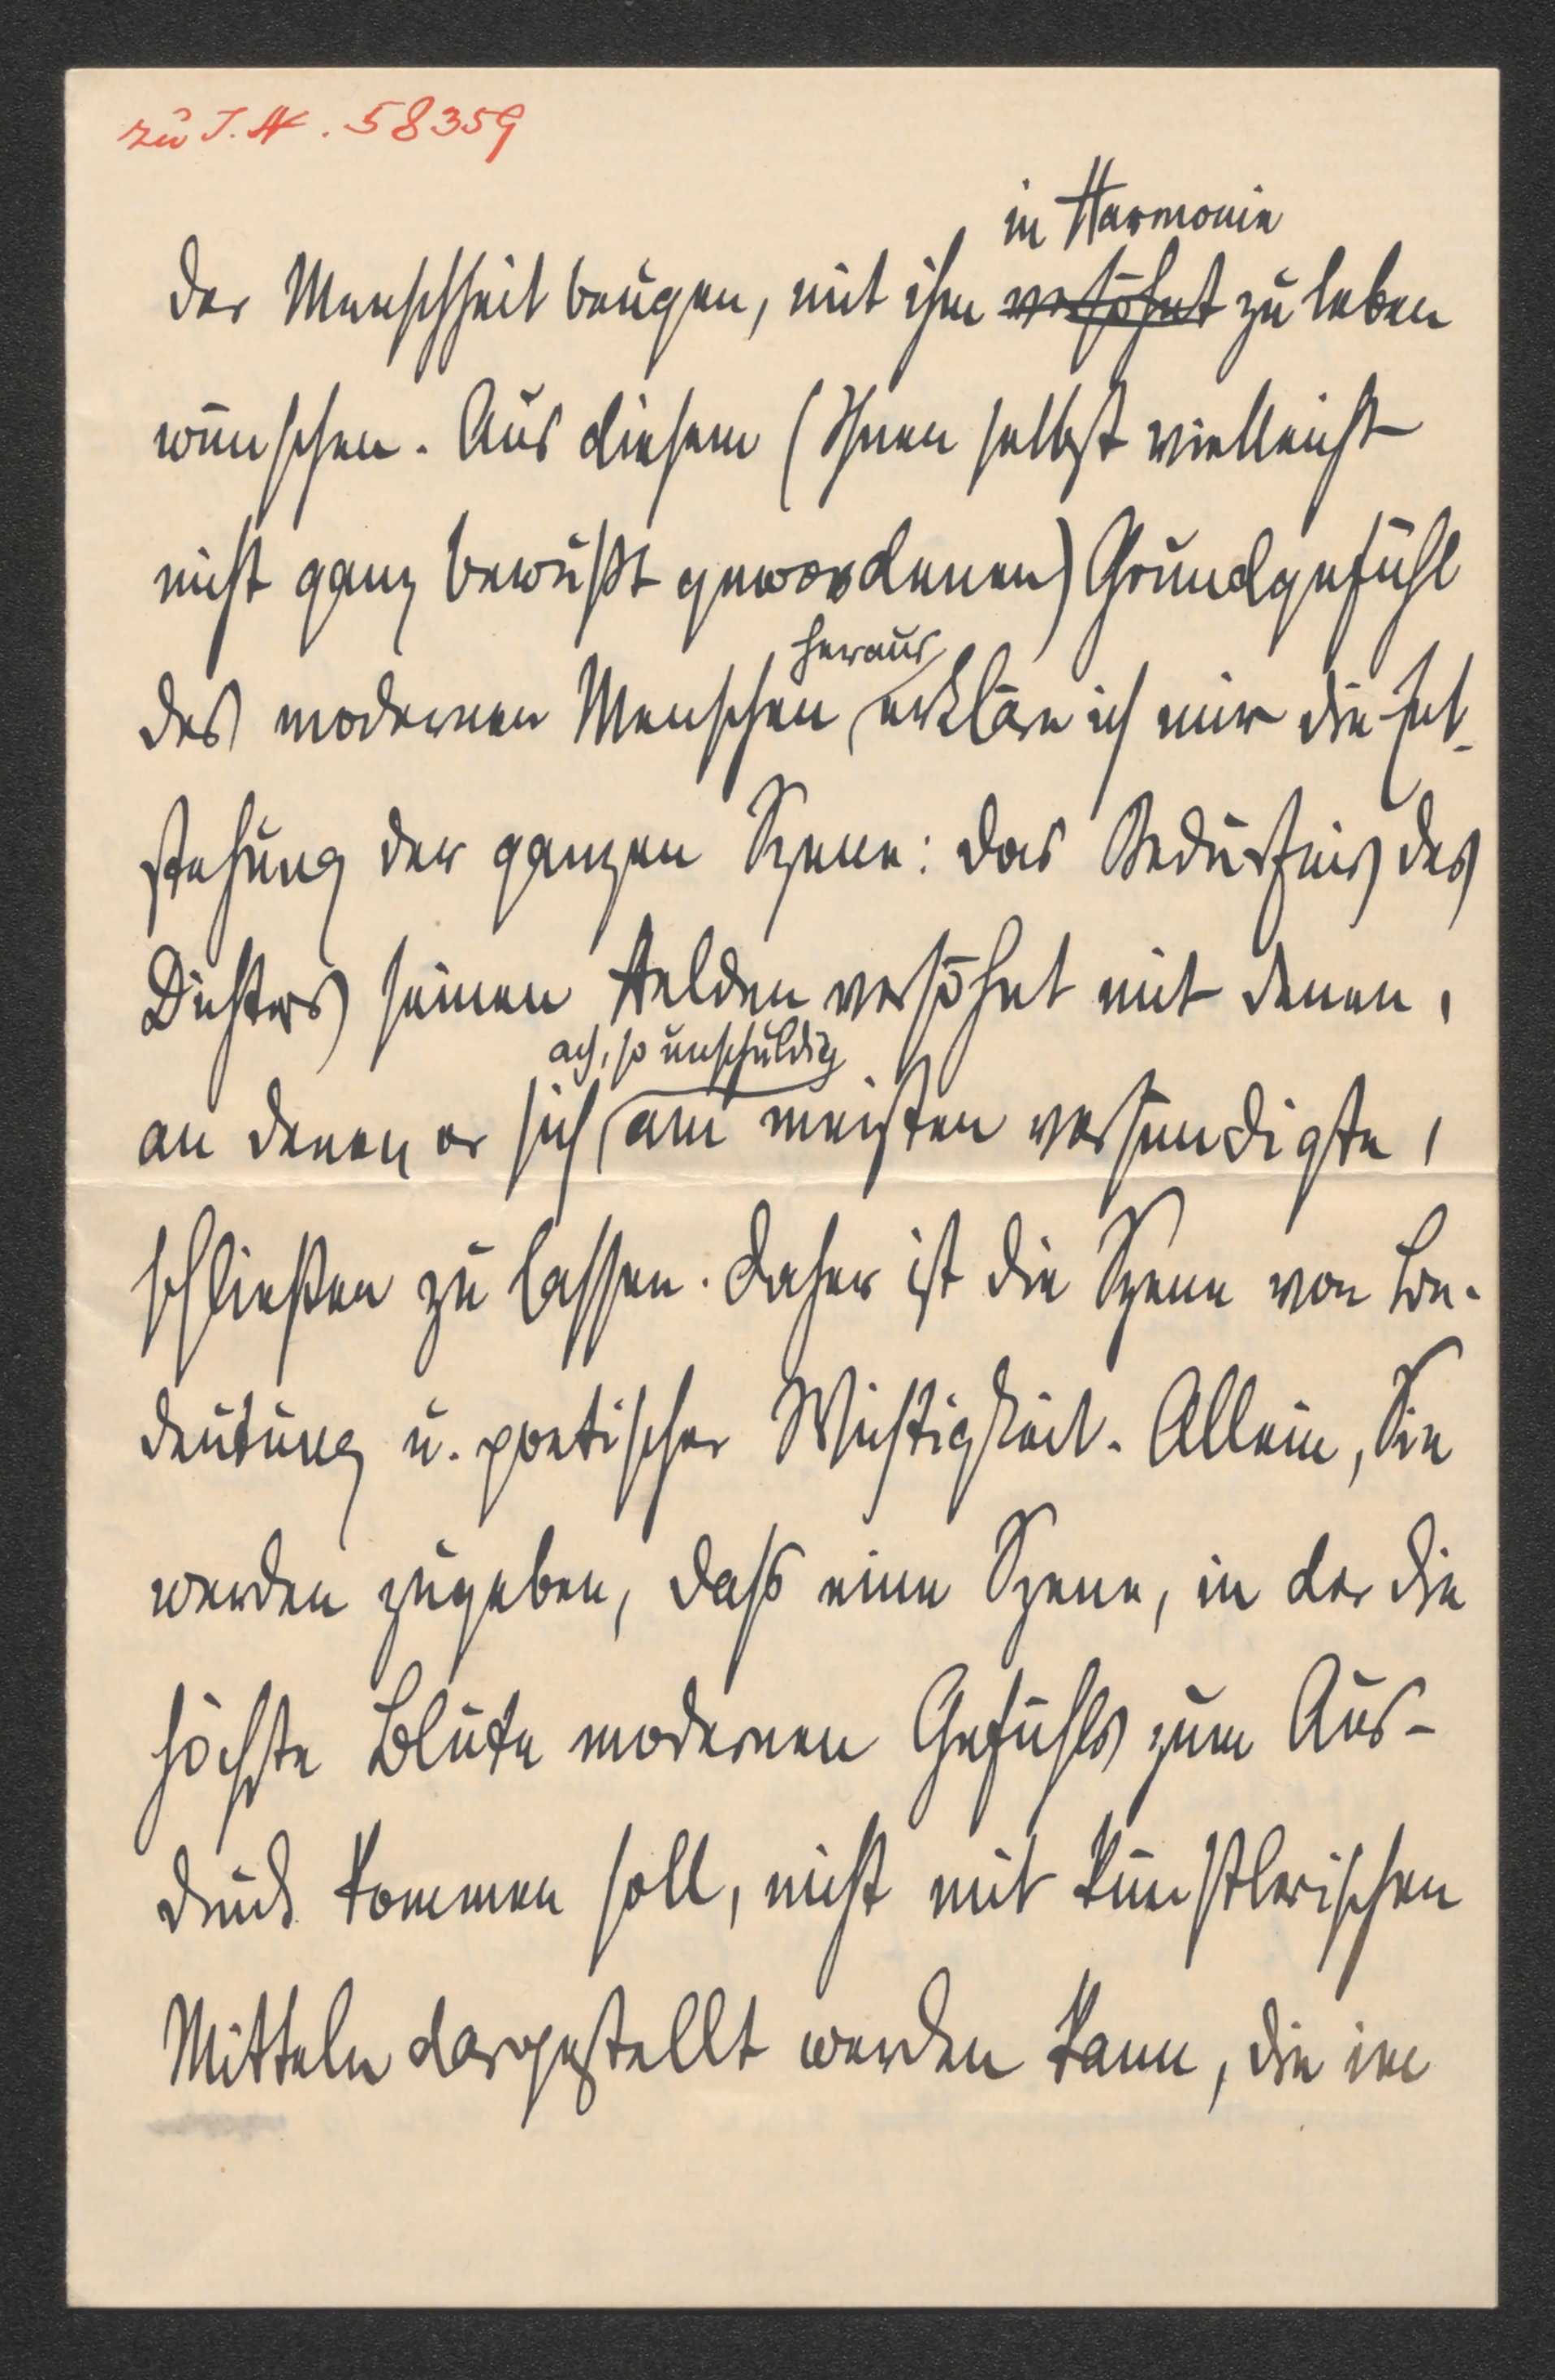 zu J. N. 58359
in Harmonie
der Menschheit beugen, mit ihm versöhnt zu leben
wünschen. Aus diesem (Ihnen selbst vielleicht
nicht ganz bewußt gewordenen) Grundgefühl
heraus
des modernen Menschen erkläre ich mir die Ent-
stehung der ganzen Szene: das Bedürfnis des
Dichters seinen Helden versöhnt mit denen,
ach, so unschuldig
an denen er sich am meisten versündigte,
schließen zu lassen. Daher ist die Szene von Be-
deutung u. poetischer Wichtigkeit. Allein, Sie
werden zugeben, dass eine Szene, in der die
höchste Blüte modernen Gefühls zum Aus-
druck kommen soll, nicht mit künstlerischen
Mitteln dargestellt werden kann, die im